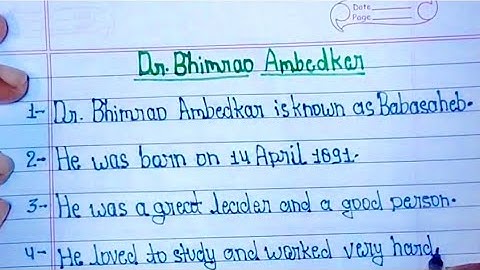 Date
Page
Dr. Bhimrao Ambedkar
1- Dr. Bhimrao Ambedkar is known as Babasaheb.
2- He was barn on 14 April 1891.
3- He was a great leader and a good person.
4- He loved to study and worked very hard